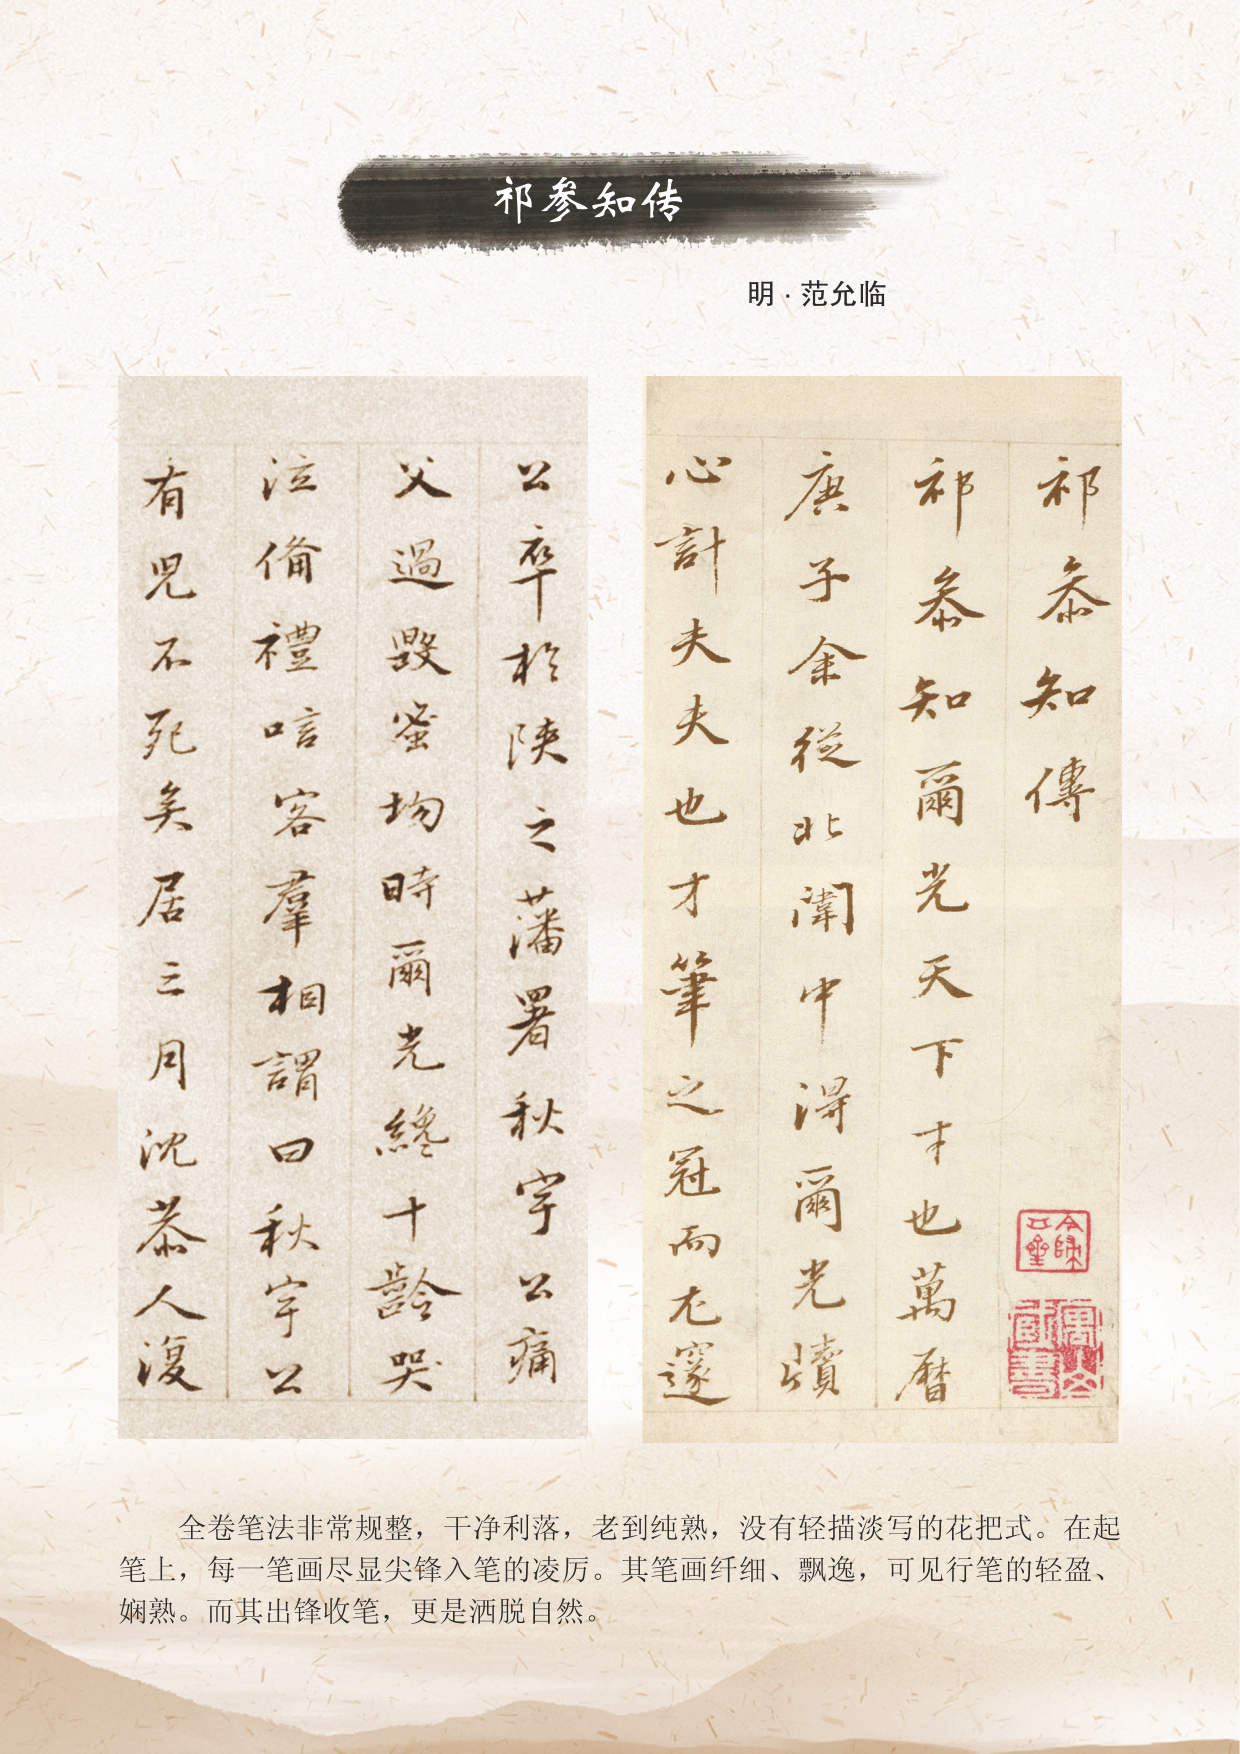 祁参知传
明·范允临
祁叅知傳
祁叅知爾光天下才也萬曆
庚子余從北闈中得爾光牘
心計夫夫也才筆之冠而尤邃
公卒於陝之藩署秋宇公痛
父過毀蜜均時爾光纔十齡哭
泣備禮唁客羣相謂曰秋宇公
有児不死矣居三月沈恭人復
全卷笔法非常规整，干净利落，老到纯熟，没有轻描淡写的花把式。在起
笔上，每一笔画尽显尖锋入笔的凌厉。其笔画纤细、飘逸，可见行笔的轻盈、
娴熟。而其出锋收笔，更是洒脱自然。